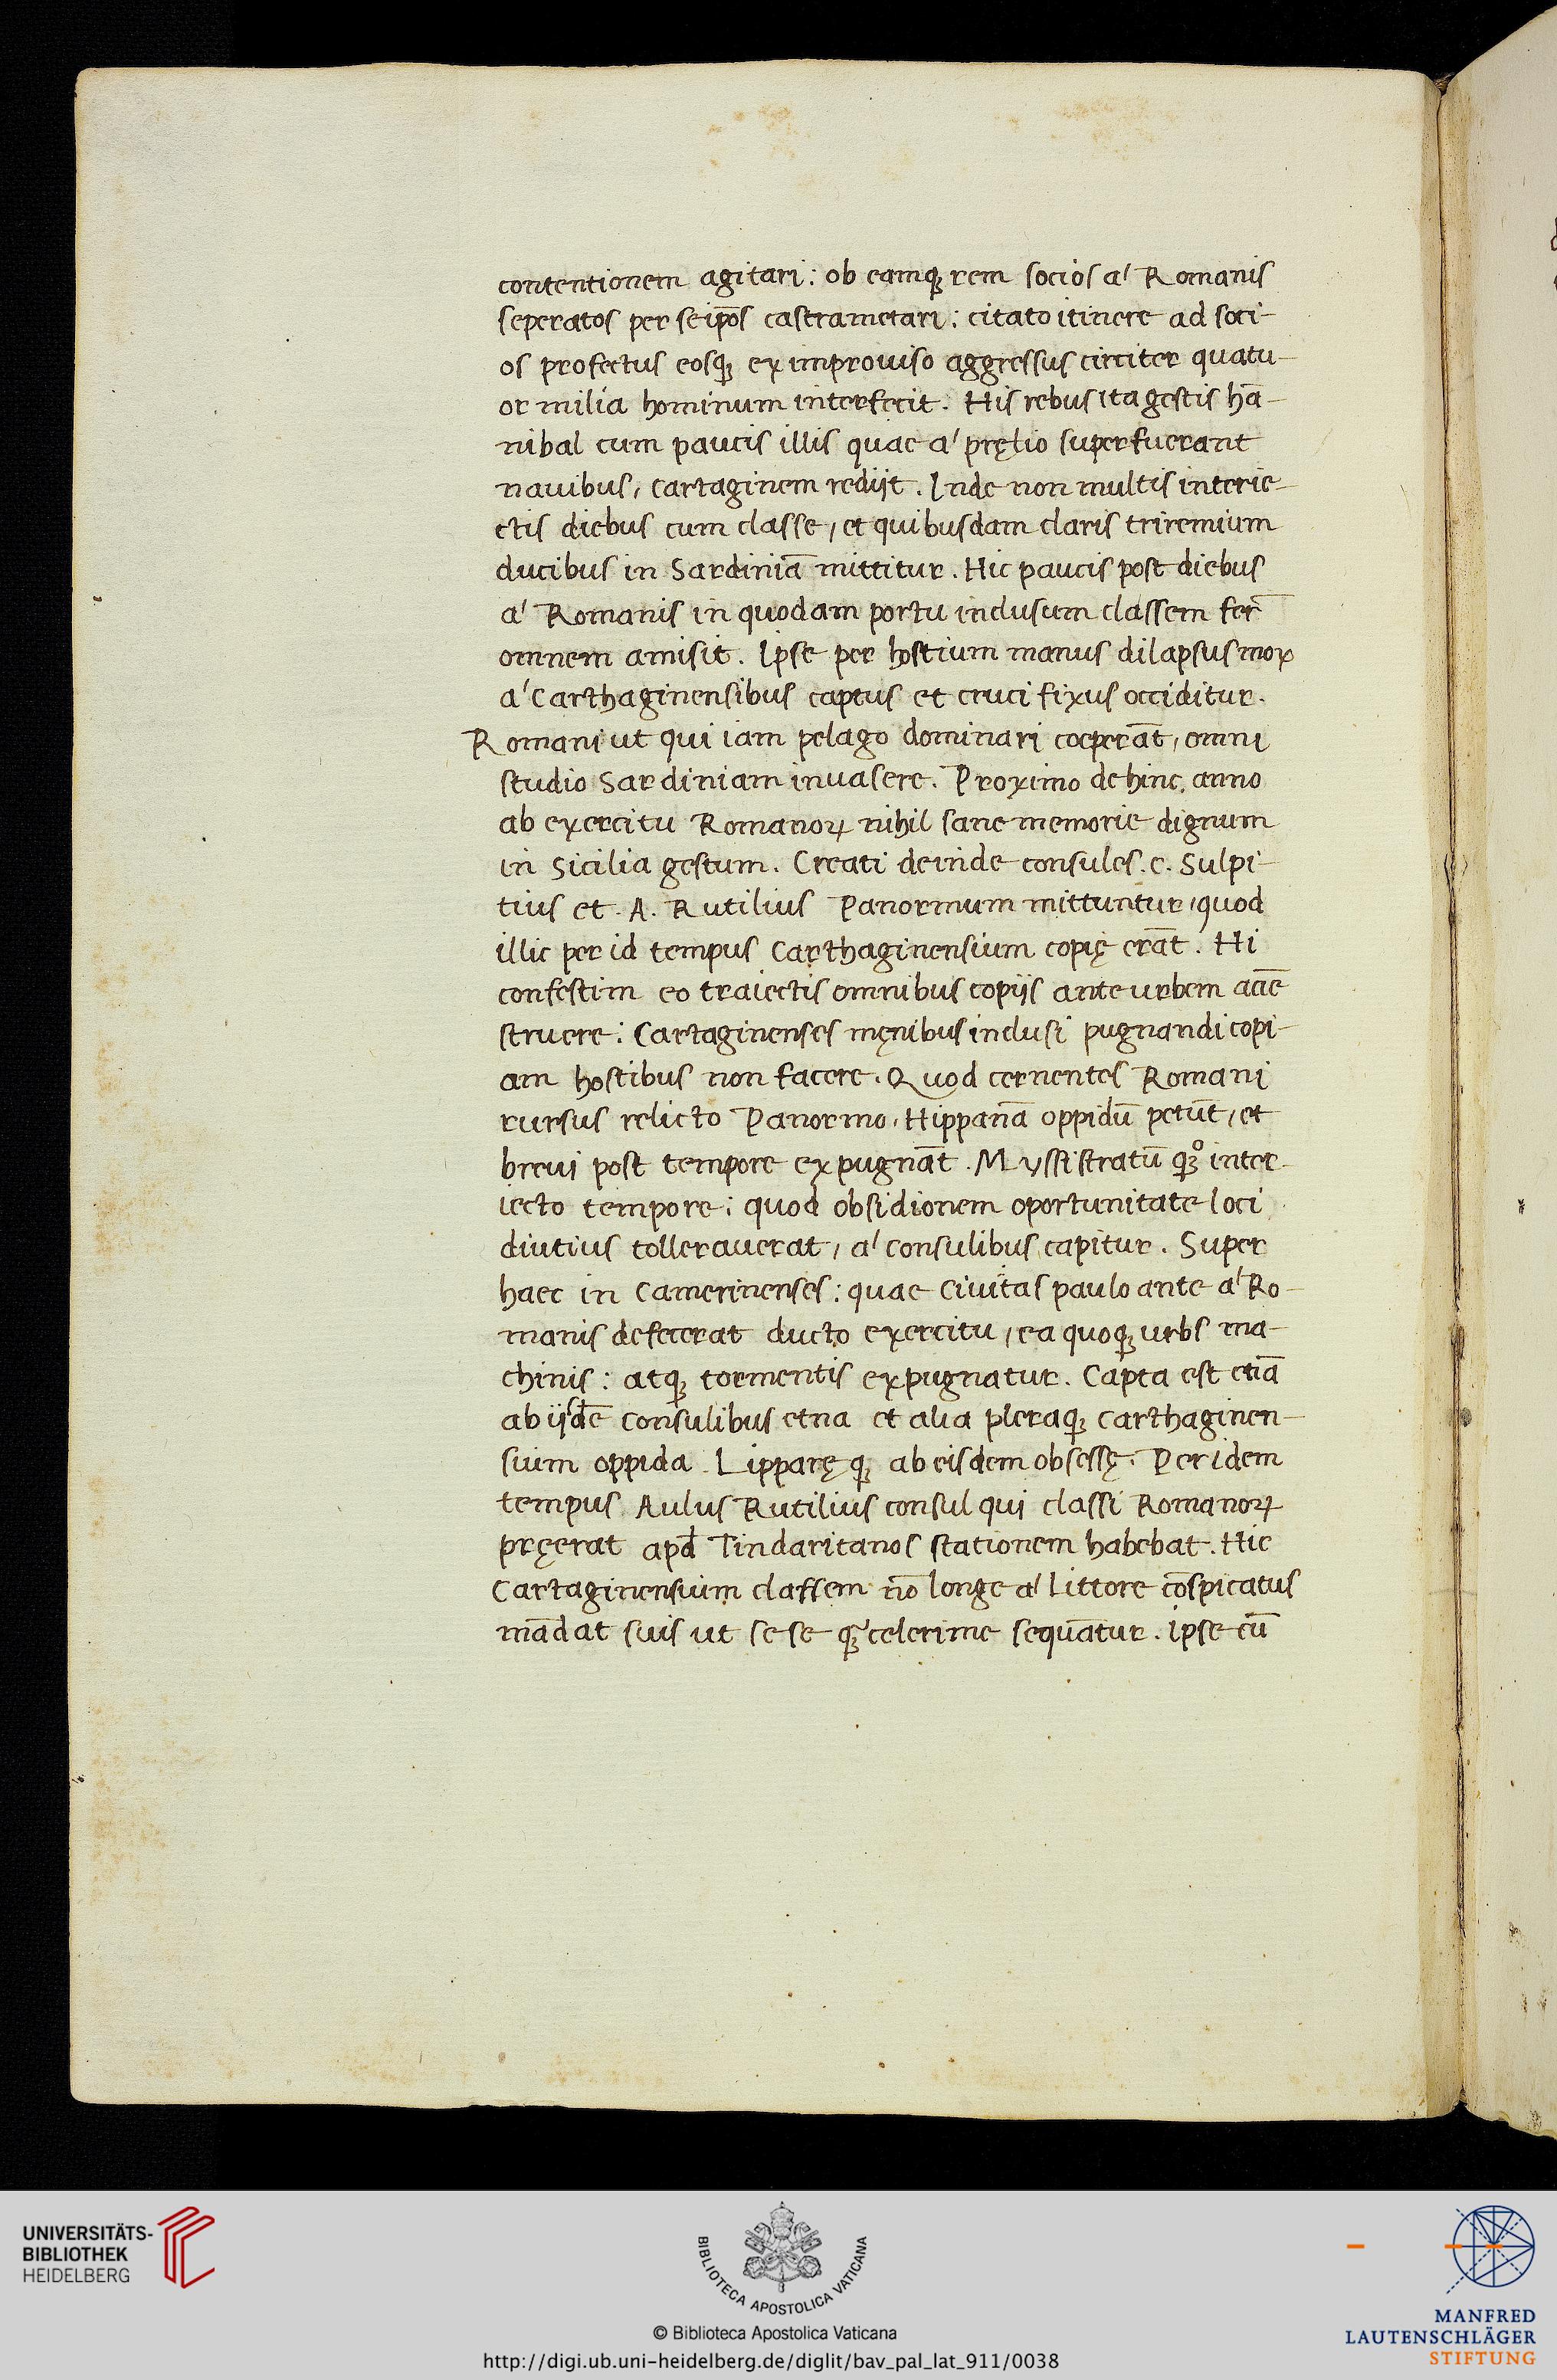 contentionem agitari: ob eamq; rem socios a' Romanis
seperatos per seip̄os castrametari: citato itinere ad soci-
os profectus eosq; ex improuiso aggressus circiter quatu-
or milia hominum interfecit. His rebus ita gestis hā-
nibal cum paucis illis quae a' pręlio superfuerant
nauibus, Cartaginem redijt. Inde non multis interie-
ctis diebus cum classe, et quibusdam claris triremium
ducibus in Sardiniā mittitur. Hic paucis post diebus
a' Romanis in quodam portu inclusum classem fer̄
omnem amisit. Ipse per hostium manus dilapsus mox
a' Carthaginensibus captus et cruci fixus occiditur.
Romani ut qui iam pelago dominari coeperāt, omni
studio Sardiniam inuasere. Proximo dehinc anno
ab exercitu Romanoꝝ nihil sane memorie dignum
in Sicilia gestum. Creati deinde consules. C. Sulpi-
tius et. A. Rutilius Panormum mittuntur, quod
illic per id tempus Carthaginensium copię erāt. Hi
confestim eo traiectis omnibus copijs ante urbem aciē
struere: Cartaginenses męnibus inclusi pugnandi copi-
am hostibus non facere. Quod cernentes Romani
rursus relicto Panormo, Hippanā oppidū petūt, et
breui post tempore expugnāt. Myssistratū q;º inter-
iecto tempore: quod obsidionem oportunitate loci
diutius tollerauerat, a' consulibus capitur. Super
haec in Camerinenses: quae Ciuitas paulo ante a' Ro-
manis defecerat ducto exercitu, ea quoq; urbs ma-
chinis: atq; tormentis expugnatur. Capta est etiā
ab ijsdē consulibus etna et alia pleraq; Carthaginen-
sium oppida. Lipparę q; ab eisdem obsessę. Per idem
tempus Aulus Rutilius consul qui classi Romanoꝝ
pręerat apd̄ Tindaritanos stationem habebat. Hic
Cartaginensium classem nō longe a' littore cōspicatus
mādat suis ut se se q̄ celerime sequātur. Ipse cū
UNIVERSITÄTS-
BIBLIOTHEK
HEIDELBERG
BIBLIOTECA APOSTOLICA VATICANA
© Biblioteca Apostolica Vaticana
http://digi.ub.uni-heidelberg.de/diglit/bav_pal_lat_911/0038
MANFRED
LAUTENSCHLÄGER
STIFTUNG